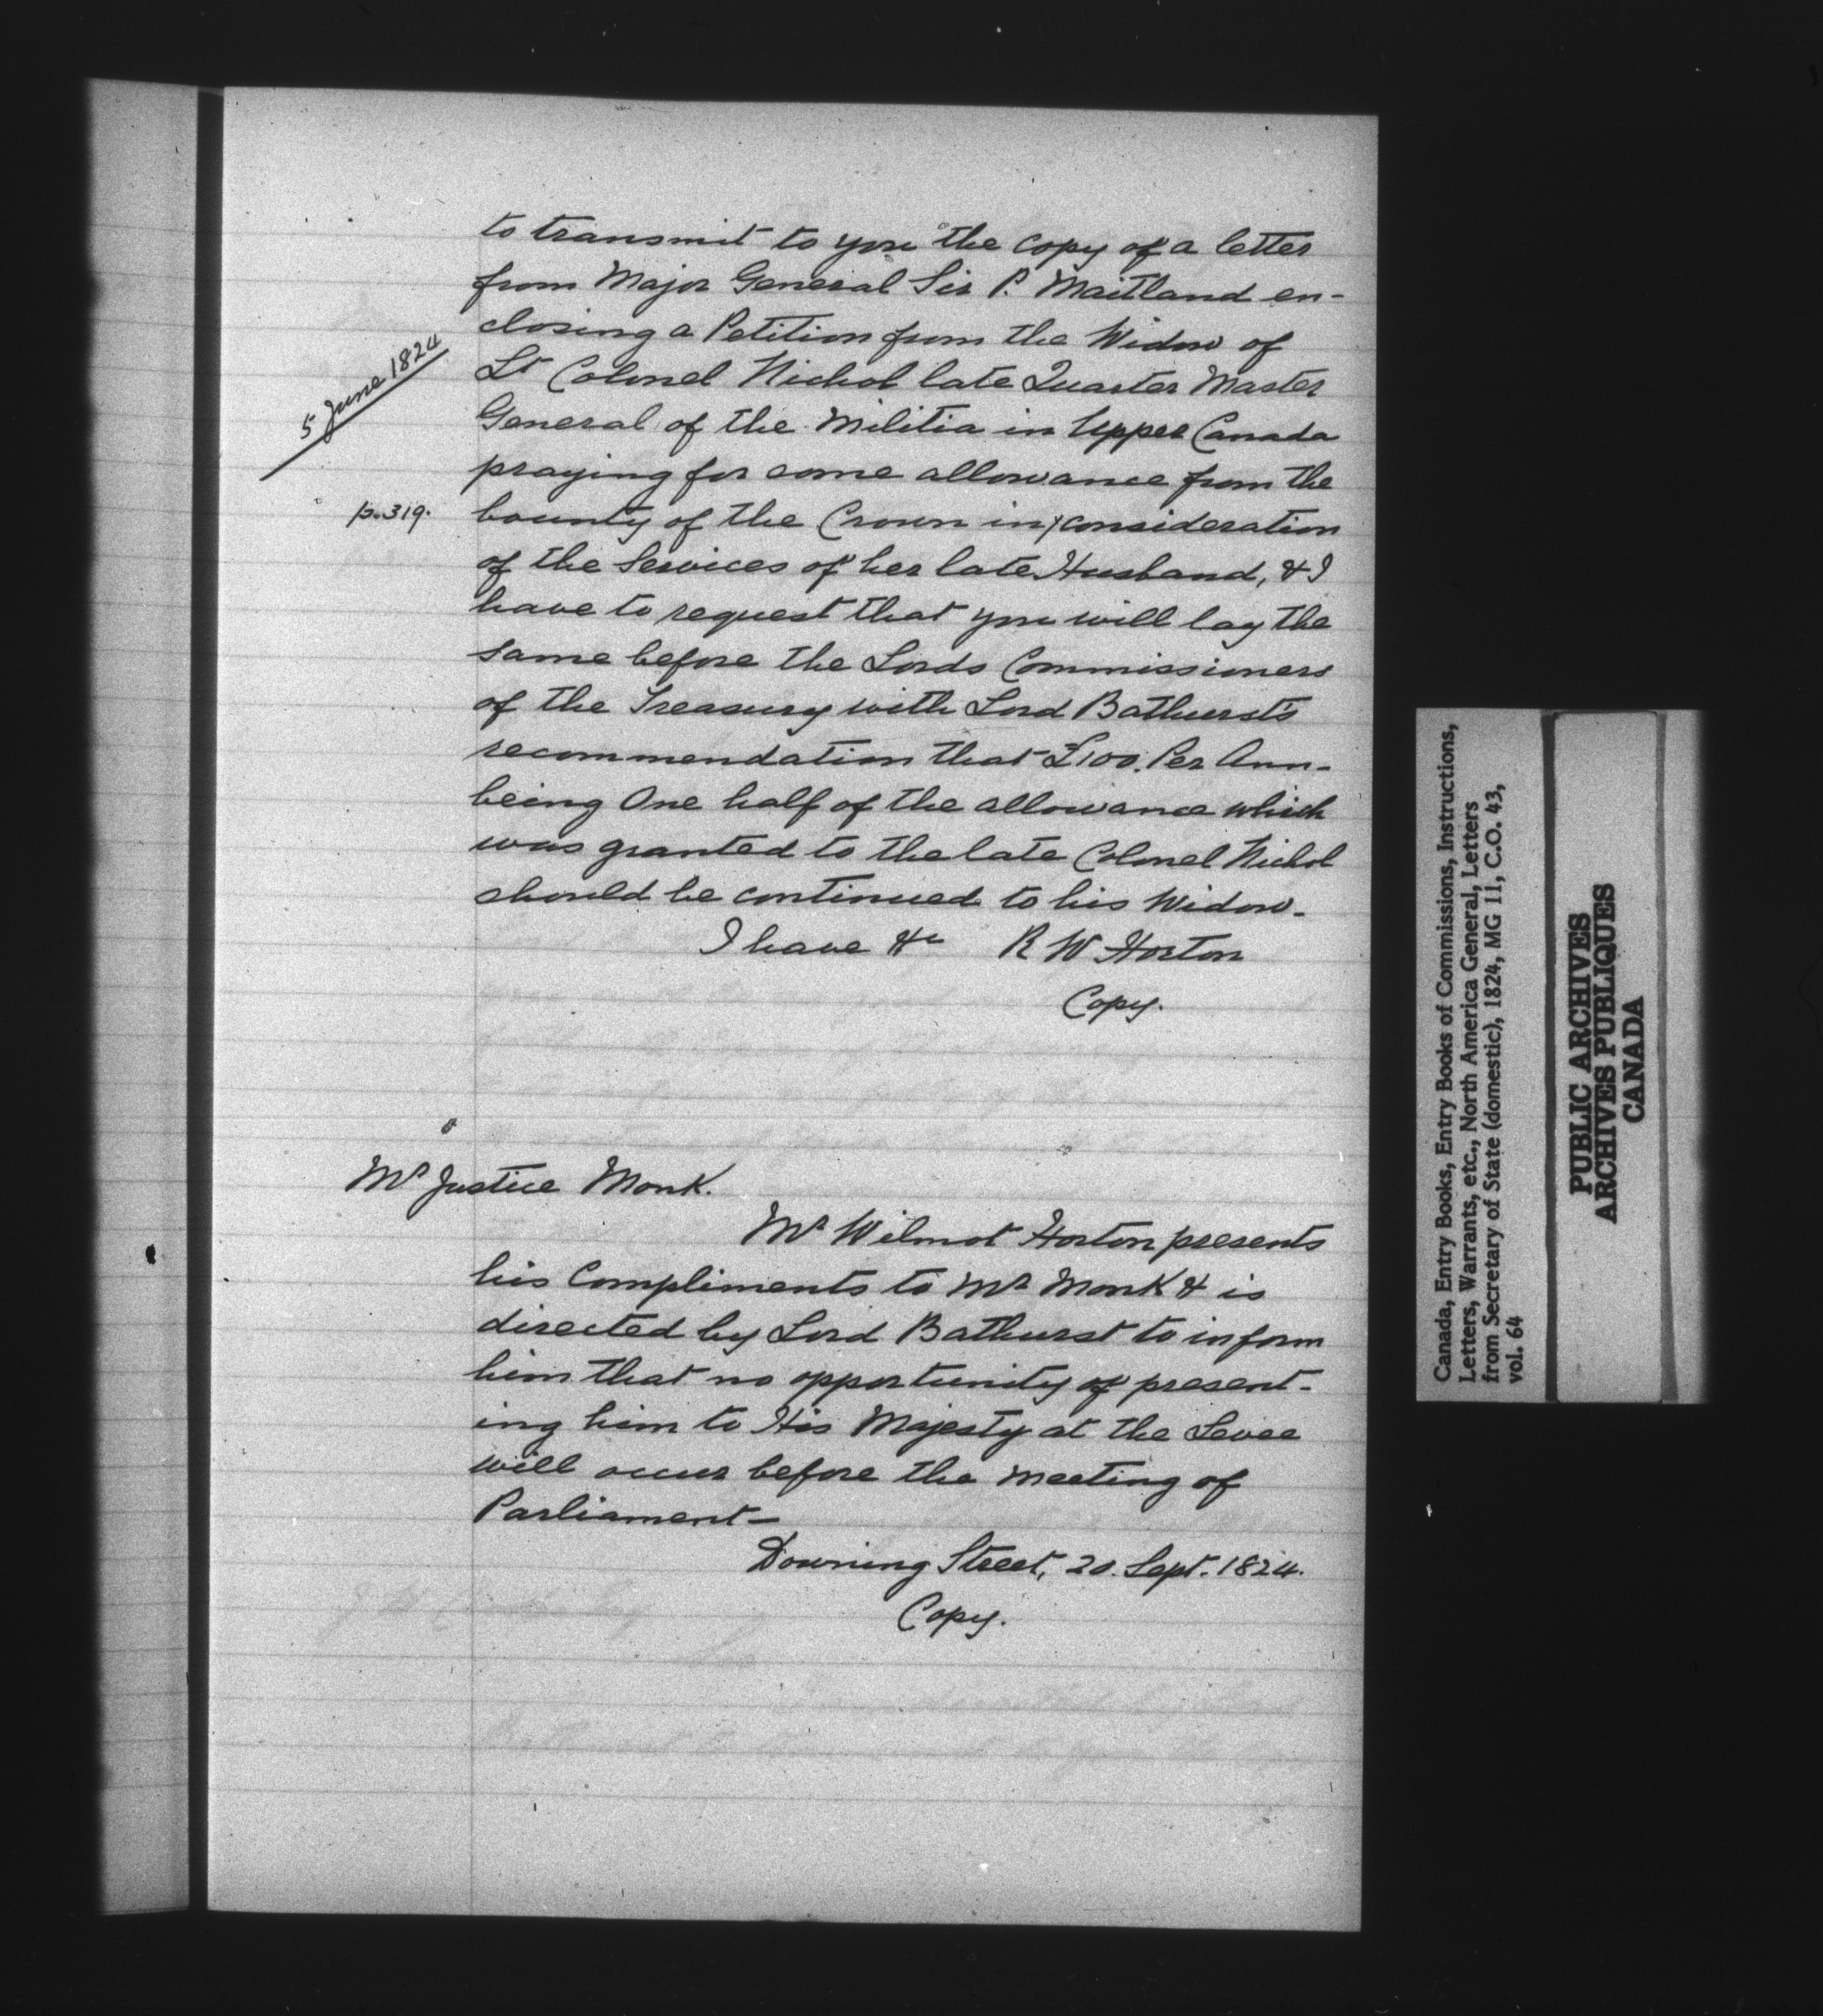 to transmit to you the copy of a letter
from Major General Sir P. Maitland en-
closing a Petition from the Widow of
5 June 1824
Lt Colonel Nichol late Quarter Master
General of the Militia in Upper Canada
praying for some allowance from the
p. 319.
bounty of the Crown in/consideration
of the Services of her late Husband, & I
have to request that you will lay the
same before the Lords Commissioners
of the Treasury with Lord Bathurst's
recommendation that £100. Per Ann-
being One half of the allowance which
was granted to the late Colonel Nichol
should be continued to his Widow-
I have &c R W Horton
Copy.
Mr Justice Monk.
Mr Wilmot Horton presents
his Compliments to Mr Monk & is
directed by Lord Bathurst to inform
him that no opportunity of present-
ing him to His Majesty at the Levee
will occur before the meeting of
Parliament-
Downing Street, 20. Sept. 1824.
Copy.
Canada, Entry Books, Entry Books of Commissions, Instructions,
Letters, Warrants, etc., North America General, Letters
from Secretary of State (domestic), 1824, MG 11, C.O. 43,
vol. 64
PUBLIC ARCHIVES
ARCHIVES PUBLIQUES
CANADA